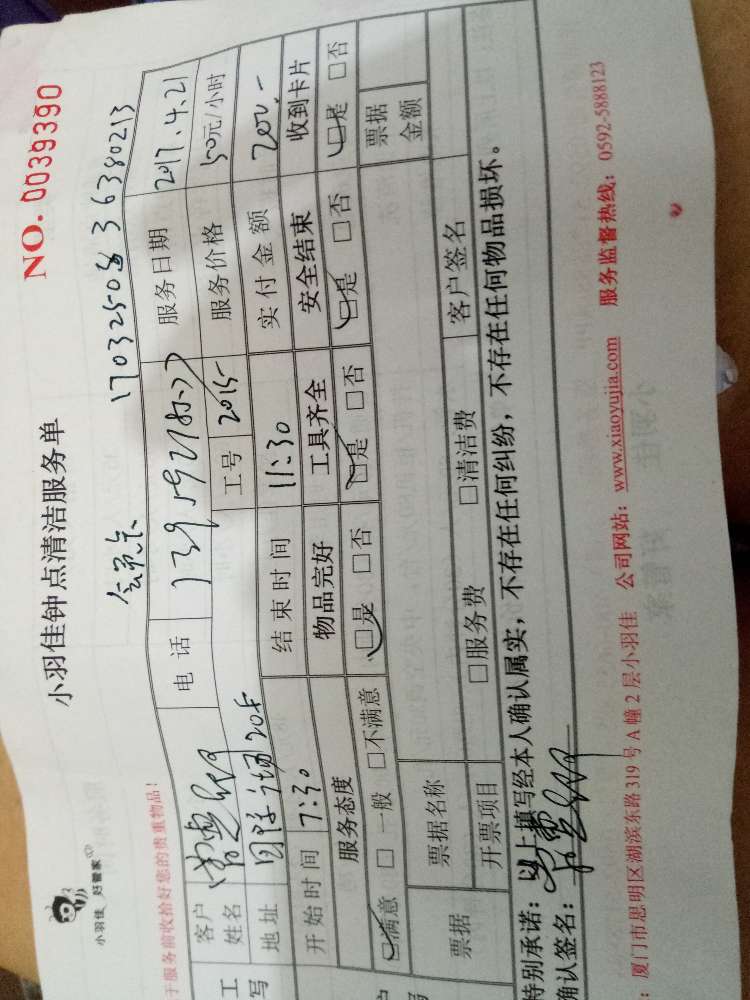 小羽佳 好管家
小羽佳钟点清洁服务单
NO. 0039390
1703250836380213
于服务前收拾好您的贵重物品！
客户姓名 电话 服务日期 2017.4.21
地址 工号 2015 服务价格 50元/小时
开始时间 7:30 结束时间 11:30 实付金额 200.-
服务态度 物品完好 工具齐全 安全结束 收到卡片
□满意 □一般 □不满意 □是 □否 □是 □否 □是 □否 □是 □否
票据 票据名称 票据金额
开票项目 □服务费 □清洁费 客户签名
特别承诺：以上填写经本人确认属实，不存在任何纠纷，不存在任何物品损坏。
确认签名：
：厦门市思明区湖滨东路319号A幢2层小羽佳 公司网站：www.xiaoyujia.com 服务监督热线：0592-5888123